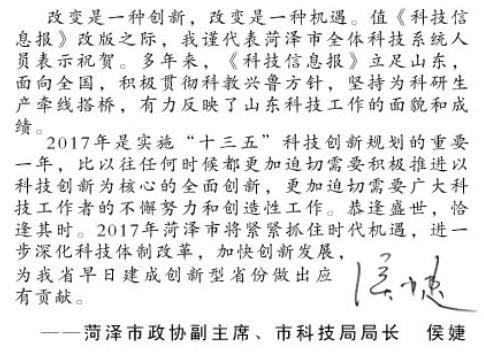 改变是一种创新，改变是一种机遇。值《科技信
息报》改版之际，我谨代表菏泽市全体科技系统人
员表示祝贺。多年来，《科技信息报》立足山东，
面向全国，积极贯彻科教兴鲁方针，坚持为科研生
产牵线搭桥，有力反映了山东科技工作的面貌和成
绩。
2017年是实施“十三五”科技创新规划的重要
一年，比以往任何时候都更加迫切需要积极推进以
科技创新为核心的全面创新，更加迫切需要广大科
技工作者的不懈努力和创造性工作。恭逢盛世，恰
逢其时。2017年菏泽市将紧紧抓住时代机遇，进一
步深化科技体制改革，加快创新发展，
为我省早日建成创新型省份做出应
有贡献。
侯婕
——菏泽市政协副主席、市科技局局长 侯婕